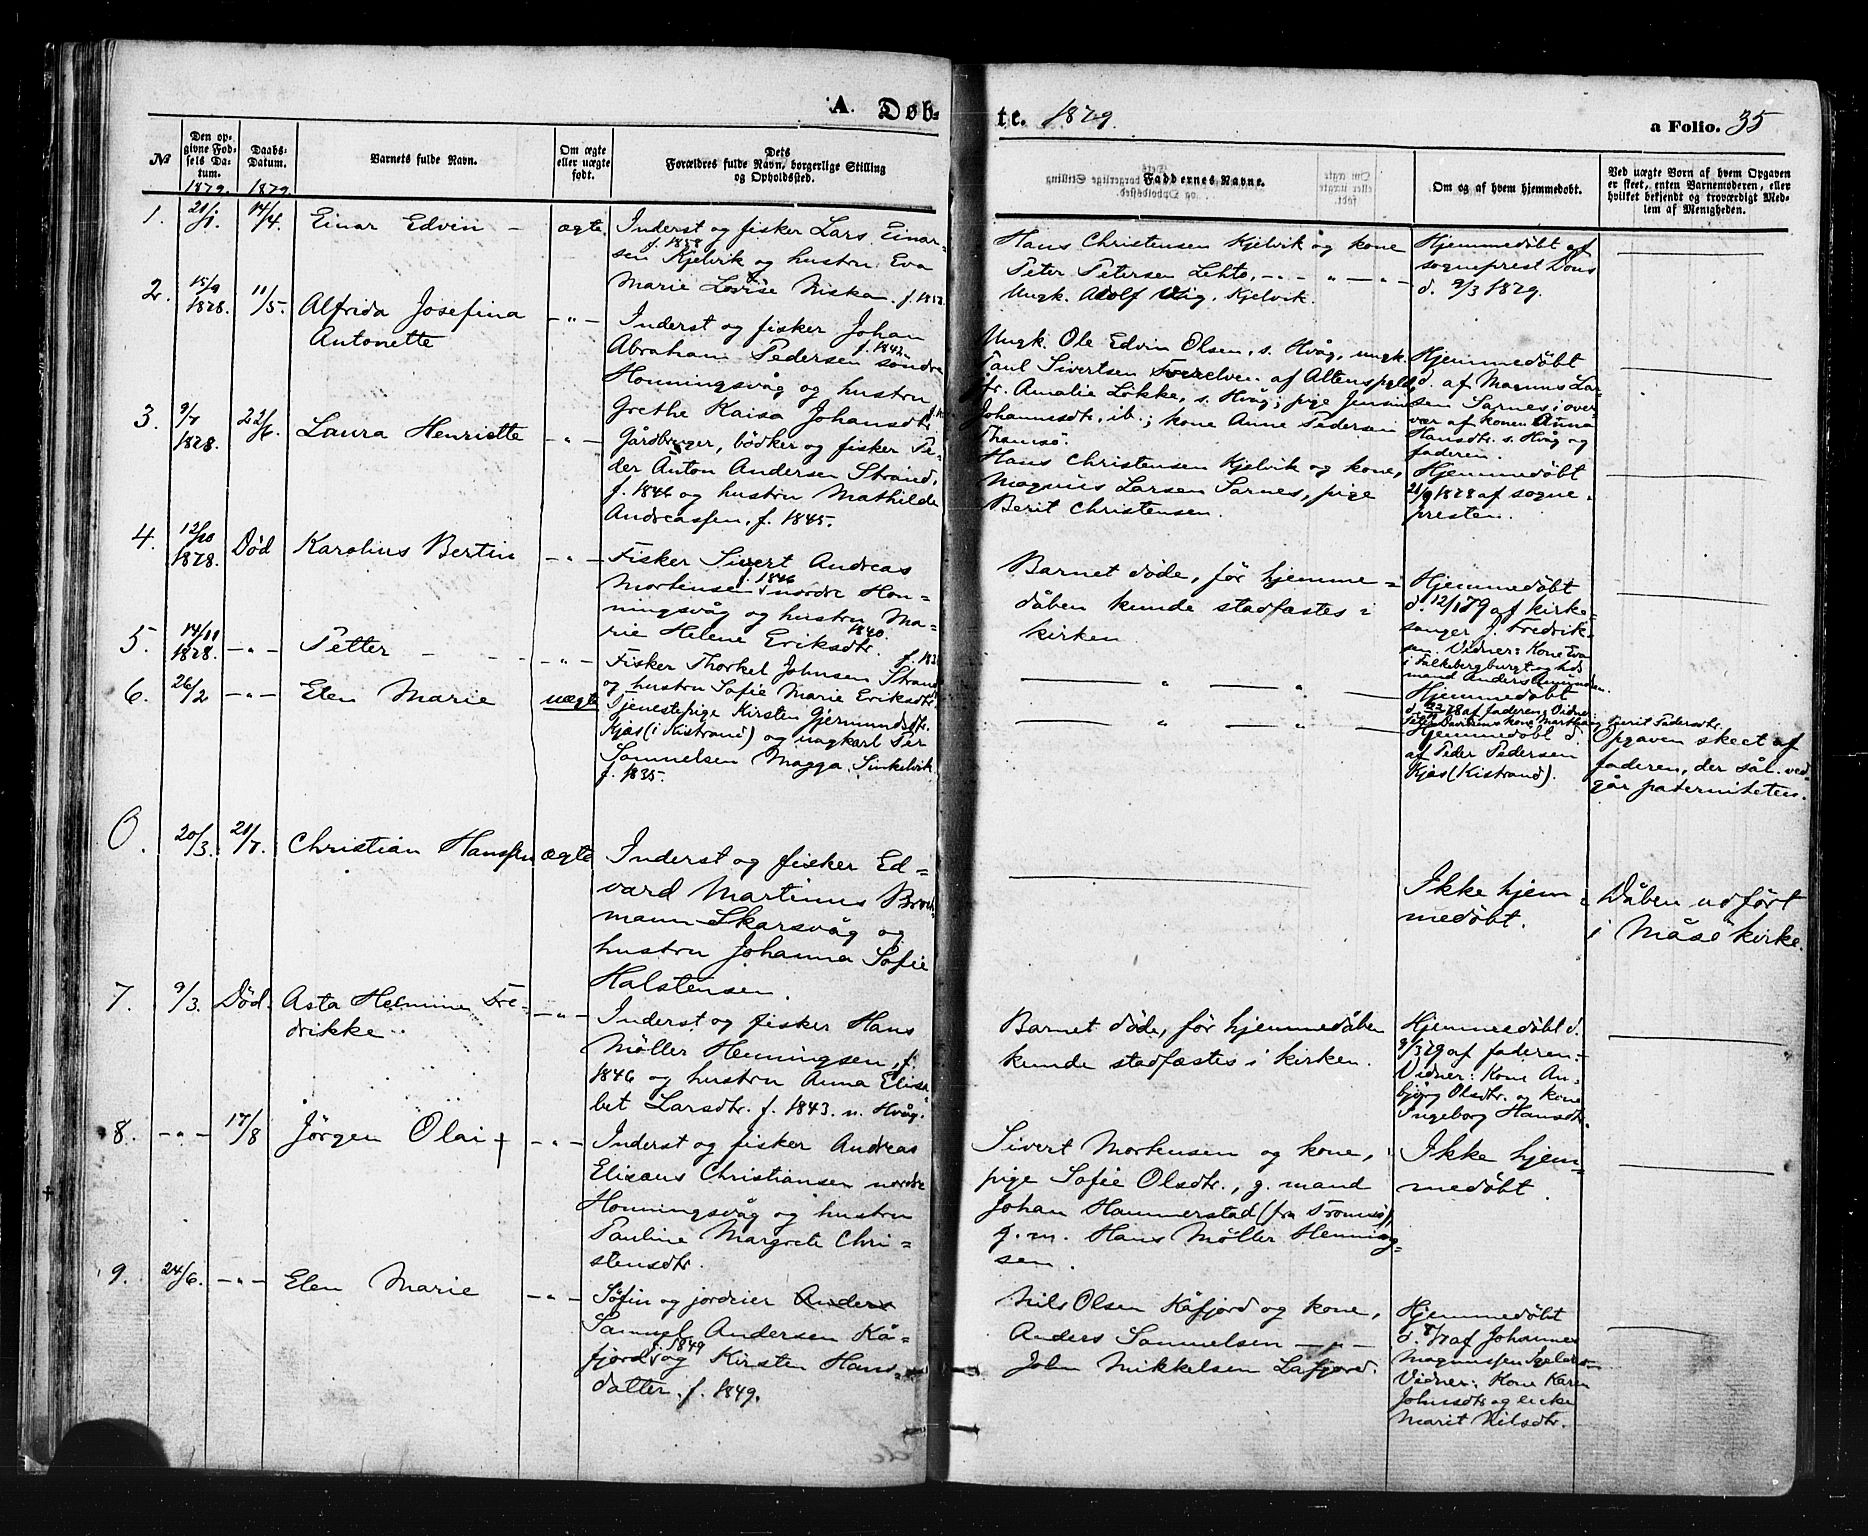 A. Døbte. 1879.
a Folio. 35
№
Den opgivne Fødsels Datum. 1879.
Daabs-Datum. 1879
Barnets fulde Navn.
Om ægte eller uægte født.
Dets Forældres fulde Navn, borgerlige Stilling og Opholdssted.
Faddernes Navne.
Om og af hvem hjemmedøbt.
Ved uægte Børn af hvem Opgaven er skeet, enten Barnemoderen, eller hvilket bekjendt og troværdigt Medlem af Menigheden.
1. 21/1. 14/4. Einar Edvin – ægte.
Inderst og fisker Lars Einar-
sen Kjelvik f. 1858 og hustru Eva
Marie Lovise Niska f.
Hans Christensen Kjelvik og kone
Peter Petersen Lehto, – " – " – " –
Ungk. Adolf Kjelvik.
Hjemmedøbt af
sogneprest Dons
d. 9/3 1879.
2. 15/9 1878. 11/5. Alfrida Josefina
Antonette – " –
Inderst og fisker Johan
Abraham Pedersen f. 1842 söndre
Honningsvåg og hustru
Grethe Kaisa Johansdtr.
Ungk. Ole Edvin Olsen, s. Hvåg, ungk.
Paul Sivertsen Tverelven af Altens
jfr. Amalie Løkke, s. Hvåg; pige Jensine
Johannsdtr. ib.; kone Anne Pedersen
Tromsö.
Hjemmedøbt
d. af Magnus Lar-
sen Sarnes, i over-
vær af konen Anna
Hansdtr. s. Hvåg og
faderen.
3. 9/7 1878. 22/6. Laura Henriette – " –
Gårdbruger, bødker og fisker Pe-
der Anton Andersen Strand,
f. 1846 og hustru Mathilde
Andreassen, f. 1845.
Hans Christensen Kjelvik og kone,
Magnus Larsen Sarnes, pige
Berit Christensen.
Hjemmedøbt
21/9 1878 af sogne-
presten.
4. 12/10 1878. Død Karolius Bertin – " –
Fisker Sivert Andreas
Mortensen f. 1846 nordre Hon-
ningsvåg og hustru Ma-
rie Helene Eriksdtr. 1840.
Barnet døde, før hjemme-
dåben kunde stadfæstes i
kirken.
Hjemmedøbt
d. 12/1 79 af kirke-
sanger J. Fredrik-
sen. Vidner: Kone Eva
5. 14/11 1878. – " – Petter – – " –
Fisker Thorkel Johnsen Strand
og hustru Sofie Marie Eriksdtr.
– " – " –
Hjemmedøbt
af faderen; Vidner
6. 26/2 – " – Elen Marie uægte
Tjenestepige Kirsten Gjermundsdtr.
Kjås (i Kistrand) og ungkarl Per
Samuelsen Magga, Sinkelvik
f. 1835.
– " – " –
Hjemmedøbt d.
af Peder Pedersen
Kjås (Kistrand).
Opgaven skeet af
faderen, der sål. ved-
går paterniteten.
0. 20/3. 21/7. Christian Hanssen ægte
Inderst og fisker Ed-
vard Martinus Broch-
mann Skarsvåg og
hustru Johanna Sofie
Halstensen.
Ikke hjem-
medøbt.
Dåben udført
i Måsö kirke.
7. 9/3. Død. Asta Helmine Fre-
drikke – " –
Inderst og fisker Hans
Møller Henningsen, f.
1846 og hustru Anna Elisa-
bet Larsdtr. f. 1843. n. Hvåg.
Barnet døde, før hjemmedåben
kunde stadfæstes i kirken.
Hjemmedøbt d.
9/3 79 af faderen –
Vidner: Kone An-
bjørg Olsdtr. og kone
Ingeborg Hansdtr.
8. – " – 17/8 Jørgen Olai + – " –
Inderst og fisker Andreas
Elisæus Christiansen nordre
Honningsvåg og hustru
Pauline Margrete Chri-
stensdtr.
Sivert Mortensen og kone,
pige Sofie Olsdtr., g. mand
Johan Hammerstad (fra Tromsö),
g. m. Hans Møller Henning-
sen.
Ikke hjem-
medøbt.
9. 24/6. – " – Elen Marie – " –
Søfin og jordeier Anders
Samuel Andersen Kå-
fjord, f. 1849 og Kirsten Hans-
datter. f. 1849.
Nils Olsen Kåfjord og kone,
Anders Samuelsen – " –
John Mikkelsen Lafjord.
Hjemmedøbt
d. 8/7 af Johannes
Magnussen
Vidner: Kone Karen
Johnsdtr og enke
Marit Nilsdtr.